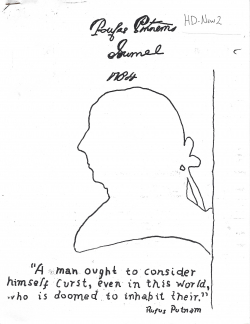 Roufas Putnams
HD-Now2
Journel
1784
"A man ought to consider
himself Curst, even in this World,
who is doomed to inhabit their."
Rufus Putnam